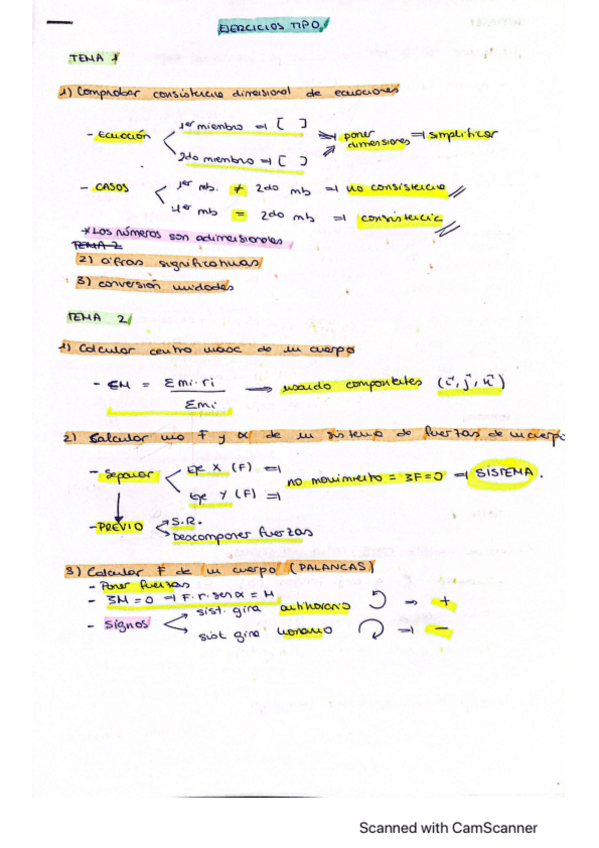 EJERCICIOS TIPO
TEMA 1
1) Comprobar consistencia dimensional de ecuaciones
- Ecuación < 1er miembro ⇒ [ ] ⇒ poner dimensiones ⇒ simplificar
2do miembro ⇒ [ ]
- CASOS < 1er mb. ≠ 2do mb ⇒ no consistencia //
1er mb = 2do mb ⇒ consistencia //
* Los números son adimensionales
TEMA 2
2) cifras significativas
3) conversión unidades
TEMA 2
1) Calcular centro masc de un cuerpo
- CM = Σmi·ri / Σmi → usando componentes (i, j, k)
2) Calcular una F y α de un sistema de fuerzas de un cuerpo
- Separar < eje X (F) ⇒ no movimiento = ΣF=0 ⇒ SISTEMA.
eje Y (F) ⇒
- PREVIO < S.R.
Descomponer fuerzas
3) Calcular F de un cuerpo (PALANCAS)
- Poner fuerzas
- ΣM=0 ⇒ F·r·sen α = M
- Signos < sist. gira antihorario ⇒ +
sist. gira horario ⇒ −
Scanned with CamScanner